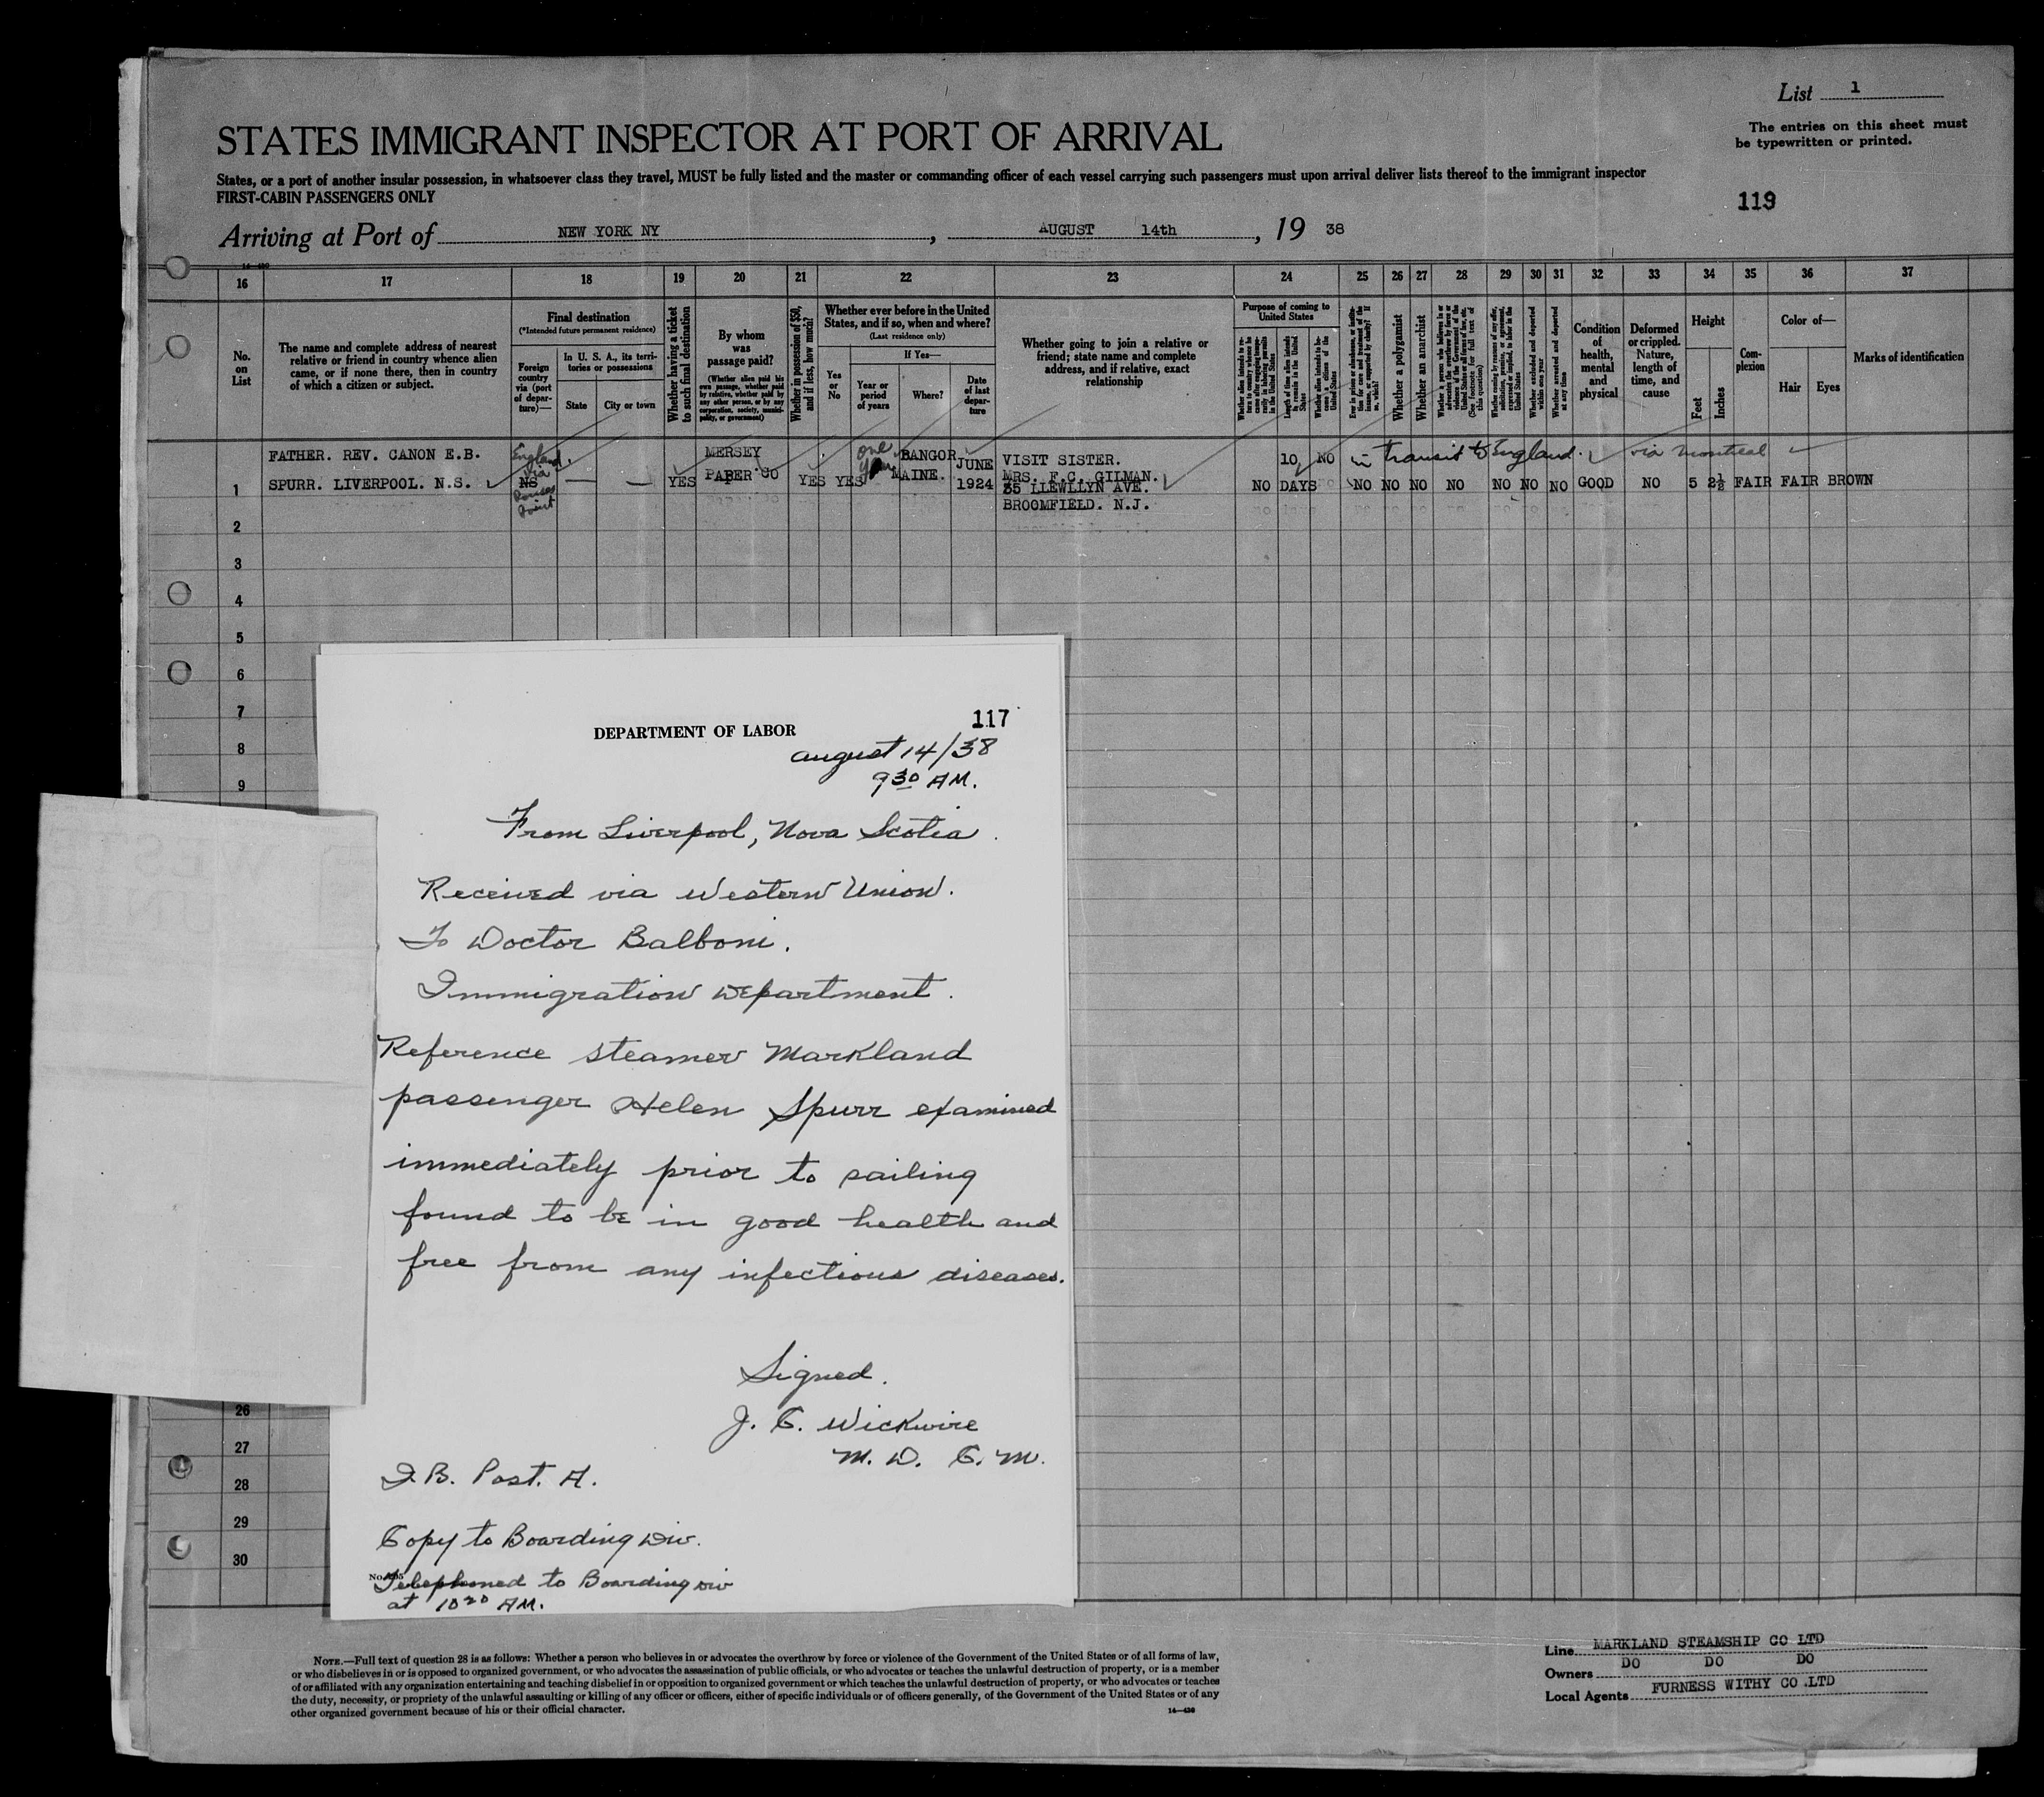 List 1
STATES IMMIGRANT INSPECTOR AT PORT OF ARRIVAL
The entries on this sheet must
be typewritten or printed.
States, or a port of another insular possession, in whatsoever class they travel, MUST be fully listed and the master or commanding officer of each vessel carrying such passengers must upon arrival deliver lists thereof to the immigrant inspector
FIRST-CABIN PASSENGERS ONLY
119
Arriving at Port of NEW YORK NY, AUGUST 14th, 19 38
16 17 18 19 20 21 22 23 24 25 26 27 28 29 30 31 32 33 34 35 36 37
No. on List
The name and complete address of nearest
relative or friend in country whence alien
came, or if none there, then in country
of which a citizen or subject.
Final destination
(*Intended future permanent residence)
Foreign country via (port of departure)—
In U. S. A., its territories or possessions
State
City or town
Whether having a ticket to such final destination
By whom was passage paid?
(Whether alien paid his own passage, whether paid by relative, whether paid by any other person, or by any corporation, society, municipality, or government)
Whether in possession of $50, and if less, how much?
Whether ever before in the United
States, and if so, when and where?
(Last residence only)
Yes or No
If Yes—
Year or period of years
Where?
Date of last departure
Whether going to join a relative or
friend; state name and complete
address, and if relative, exact
relationship
Purpose of coming to United States
Length of time alien intends to remain in the United States
Whether a polygamist
Whether an anarchist
Whether excluded and deported within one year
Whether arrested and deported at any time
Condition of health, mental and physical
Deformed or crippled. Nature, length of time, and cause
Height
Feet
Inches
Complexion
Color of—
Hair
Eyes
Marks of identification
FATHER. REV. CANON E.B. England. MERSEY one BANGOR JUNE VISIT SISTER. 10 NO in transit to England. via Montreal
1 SPURR. LIVERPOOL. N.S. via NS — — YES PAPER CO YES YES year MAINE. 1924 MRS. F.C. GILMAN. NO DAYS NO NO NO NO NO NO NO GOOD NO 5 2½ FAIR FAIR BROWN
Rouses Point 35 LLEWLLYN AVE.
BROOMFIELD. N.J.
2
3
4
5
6
7
8
9
117
DEPARTMENT OF LABOR
august 14/38
9 30 AM.
From Liverpool, Nova Scotia.
Received via Western Union.
To Doctor Balboni.
Immigration Department.
Reference steamer Markland
passenger Helen Spurr examined
immediately prior to sailing
found to be in good health and
free from any infectious diseases.
Signed.
J. C. Wickwire
M. D. C. M.
I. B. Post. A.
Copy to Boarding Div.
Telephoned to Boarding Div
at 10 20 AM.
26
27
28
29
30
NOTE.—Full text of question 28 is as follows: Whether a person who believes in or advocates the overthrow by force or violence of the Government of the United States or of all forms of law,
or who disbelieves in or is opposed to organized government, or who advocates the assassination of public officials, or who advocates or teaches the unlawful destruction of property, or is a member
of or affiliated with any organization entertaining and teaching disbelief in or opposition to organized government or which teaches the unlawful destruction of property, or who advocates or teaches
the duty, necessity, or propriety of the unlawful assaulting or killing of any officer or officers, either of specific individuals or of officers generally, of the Government of the United States or of any
other organized government because of his or their official character.
14—430
Line MARKLAND STEAMSHIP CO LTD
Owners DO DO DO
Local Agents FURNESS WITHY CO.LTD